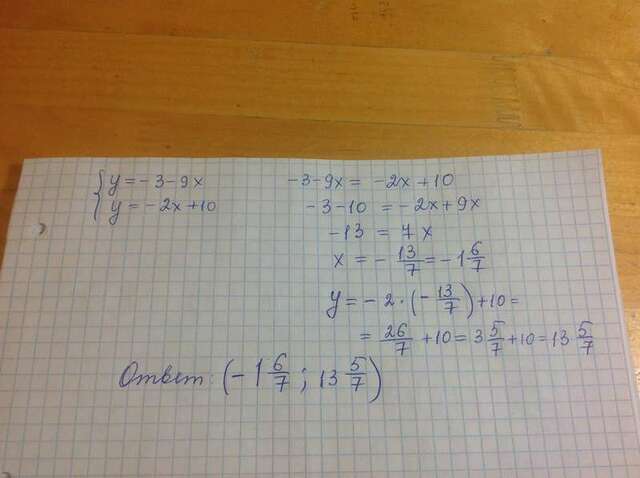 { y = -3-9x
y = -2x+10
-3-9x = -2x+10
-3-10 = -2x+9x
-13 = 7x
x = -13/7 = -1 6/7
y = -2·(-13/7)+10 =
= 26/7 +10 = 3 5/7 +10 = 13 5/7
Ответ: (-1 6/7 ; 13 5/7)